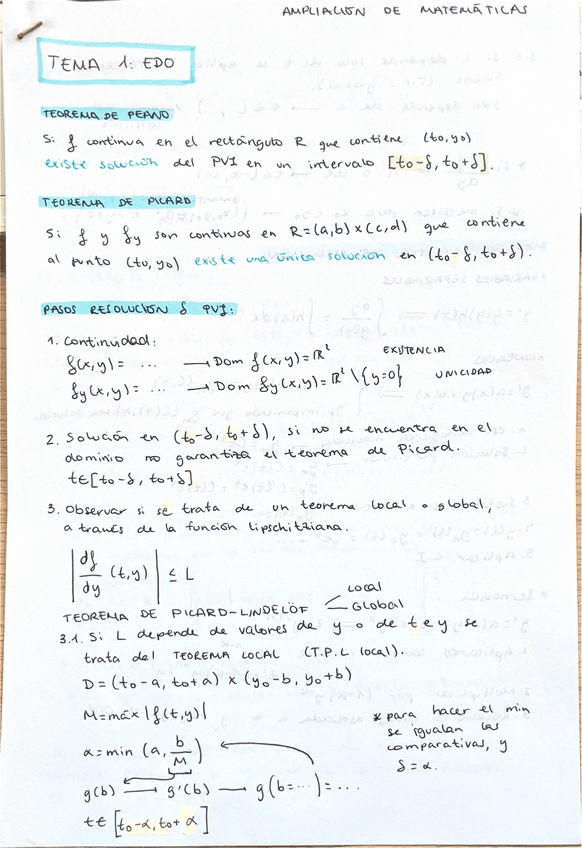 AMPLIACIÓN DE MATEMÁTICAS
TEMA 1: EDO
TEOREMA DE PEANO
Si f continua en el rectángulo R que contiene (to,yo)
existe solución del PVI en un intervalo [to-δ, to+δ].
TEOREMA DE PICARD
Si f y fy son continuas en R=(a,b) x (c,d) que contiene
al punto (to, yo) existe una única solución en (to-δ, to+δ).
PASOS RESOLUCIÓN δ PVI:
1. Continuidad:
f(x,y) = ... → Dom f(x,y) = ℝ² EXISTENCIA
fy(x,y) = ... → Dom fy(x,y) = ℝ² \ {y=0} UNICIDAD
2. Solución en (to-δ, to+δ), si no se encuentra en el
dominio no garantiza el teorema de Picard.
t∈[to-δ, to+δ]
3. Observar si se trata de un teorema local o global,
a través de la función lipschitziana.
|df/dy (t,y)| ≤ L
TEOREMA DE PICARD-LINDELÖF Local
Global
3.1. Si L depende de valores de y o de t e y se
trata del TEOREMA LOCAL (T.P.L local).
D = (to-a, to+a) x (yo-b, yo+b)
M = máx |f(t,y)|
α = min (a, b/M)
g(b) → g'(b) → g(b=...) = ...
t∈ [to-α, to+α]
* para hacer el min
se igualan las
comparativas, y
δ = α.